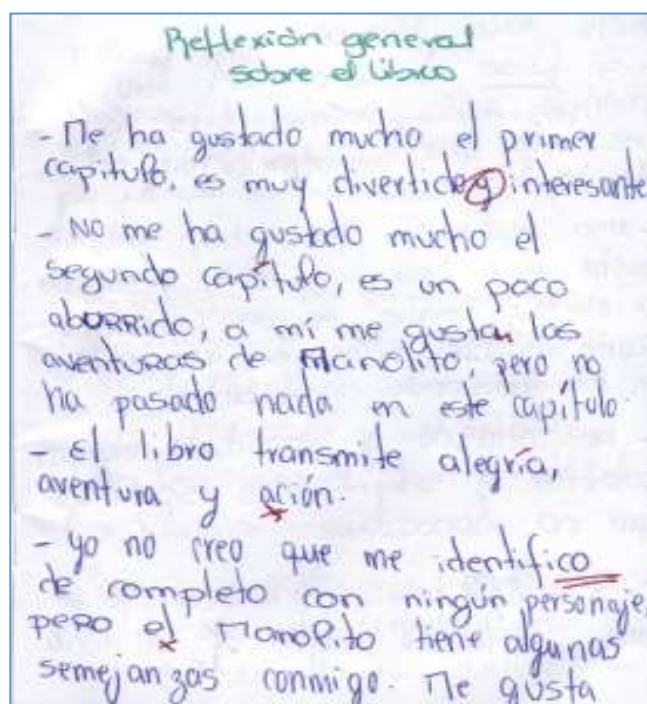 Reflexión general
sobre el libro
- Me ha gustado mucho el primer
capítulo, es muy divertido y interesante
- No me ha gustado mucho el
segundo capítulo, es un poco
aborrido, a mí me gustan las
aventuras de Manolito, pero no
ha pasado nada en este capítulo.
- El libro transmite alegría,
aventura y ación.
- yo no creo que me identifico
de completo con ningún personaje,
pero el Manolito tiene algunas
semejanzas conmigo. Me gusta